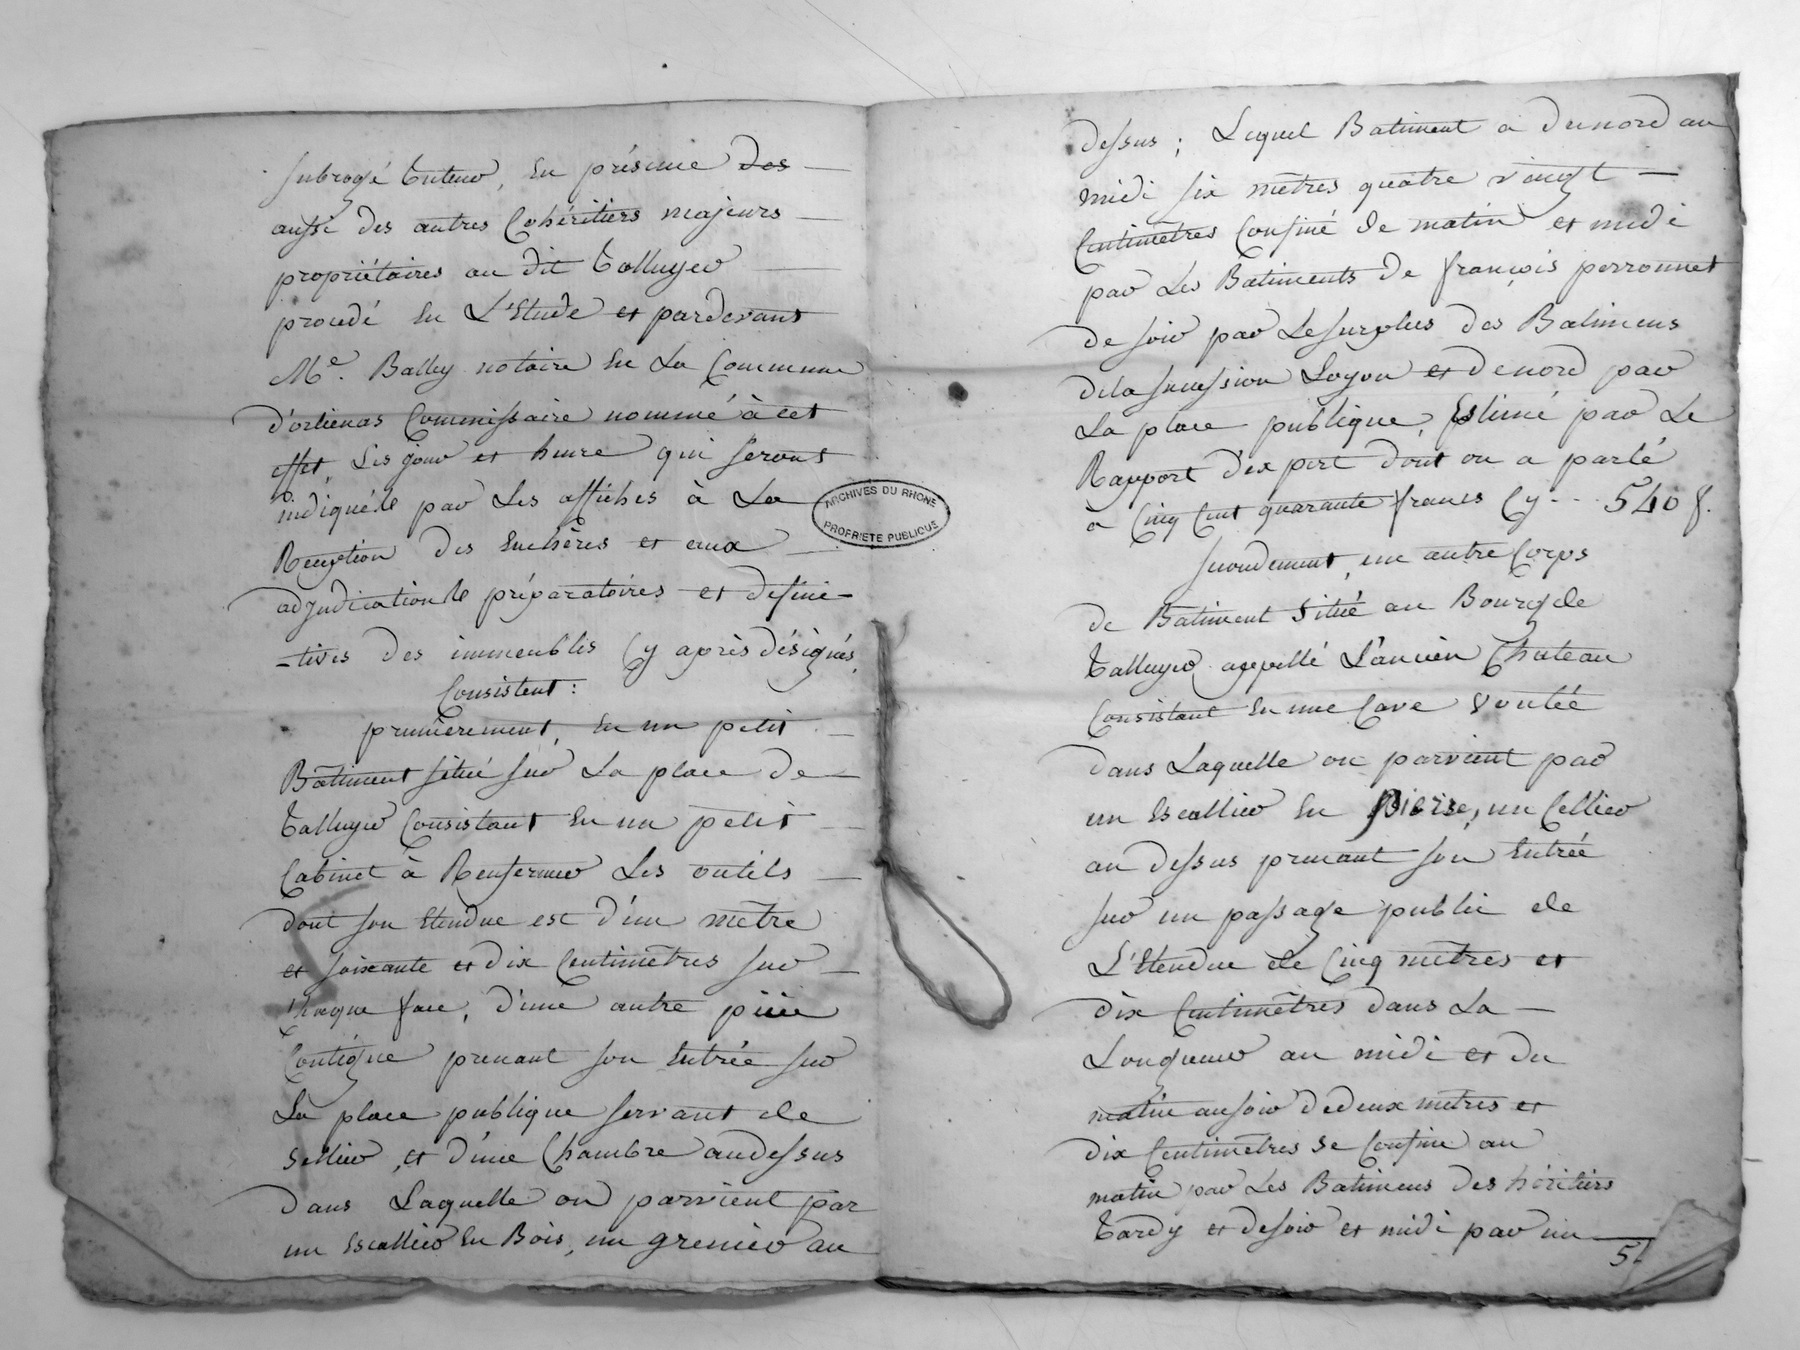 subrogé tuteur, en présence des
aussi des autres Cohéritiers majeurs
propriétaires au dit Talluyer
procédé en L'Etude et pardevant
Me. Balley notaire en La Commune
d'orlienas Commissaire nommé à cet
effet, Les jour et heure qui seront
indiqués par Les affiches à La
Reception des Enchères et aux
adjudications préparatoires et defini-
-tives des immeubles Cy après désignés,
Consistent:
premièrement, En un petit
Bâtiment situé sur La place de
Talluyer Consistant En un petit
Cabinet à Renfermer Les outils
dont son Etendue est d'un mètre
et soixante et dix Centimètres sur
Chaque face, d'une autre pièce
Contigue prenant son Entrée sur
La place publique servant de
Sellier, et d'une Chambre audessus
dans Laquelle on parvient par
un Escallier En Bois, un grenier au
ARCHIVES DU RHONE
PROPRIETE PUBLIQUE
dessus; Lequel Batiment a du nord au
midi six mètres quatre vingt
Centimètres Confiné de matin et midi
par Les Batiments de françois perronnet
de soir par Le surplus des Batimens
de la succession Loyon et de nord par
La place publique, Estimé par Le
Rapport d'expert dont on a parlé
à Cinq Cent quarante francs Cy .. 540 f.
secondement, un autre Corps
de Bâtiment Situé au Bourg de
Talluyer appellé L'ancien Chateau
Consistant En une Cave voutée
dans Laquelle on parvient par
un Escallier En Pierre, un Cellier
au dessus prenant son Entrée
sur un passage public de
L'Etendue de Cinq mètres et
dix Centimètres dans La
Longueur au midi et du
matin au soir de deux mètres et
dix Centimètres se Confine au
matin par Les Batimens des héritiers
Tardy et de soir et midi par un